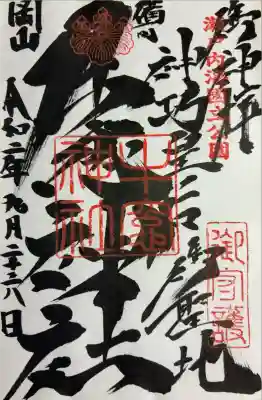 瀬戸内海国立公園
神功皇后御聖地
御守護
備前
牛窓神社
牛窓神社
岡山
令和二年九月二十八日